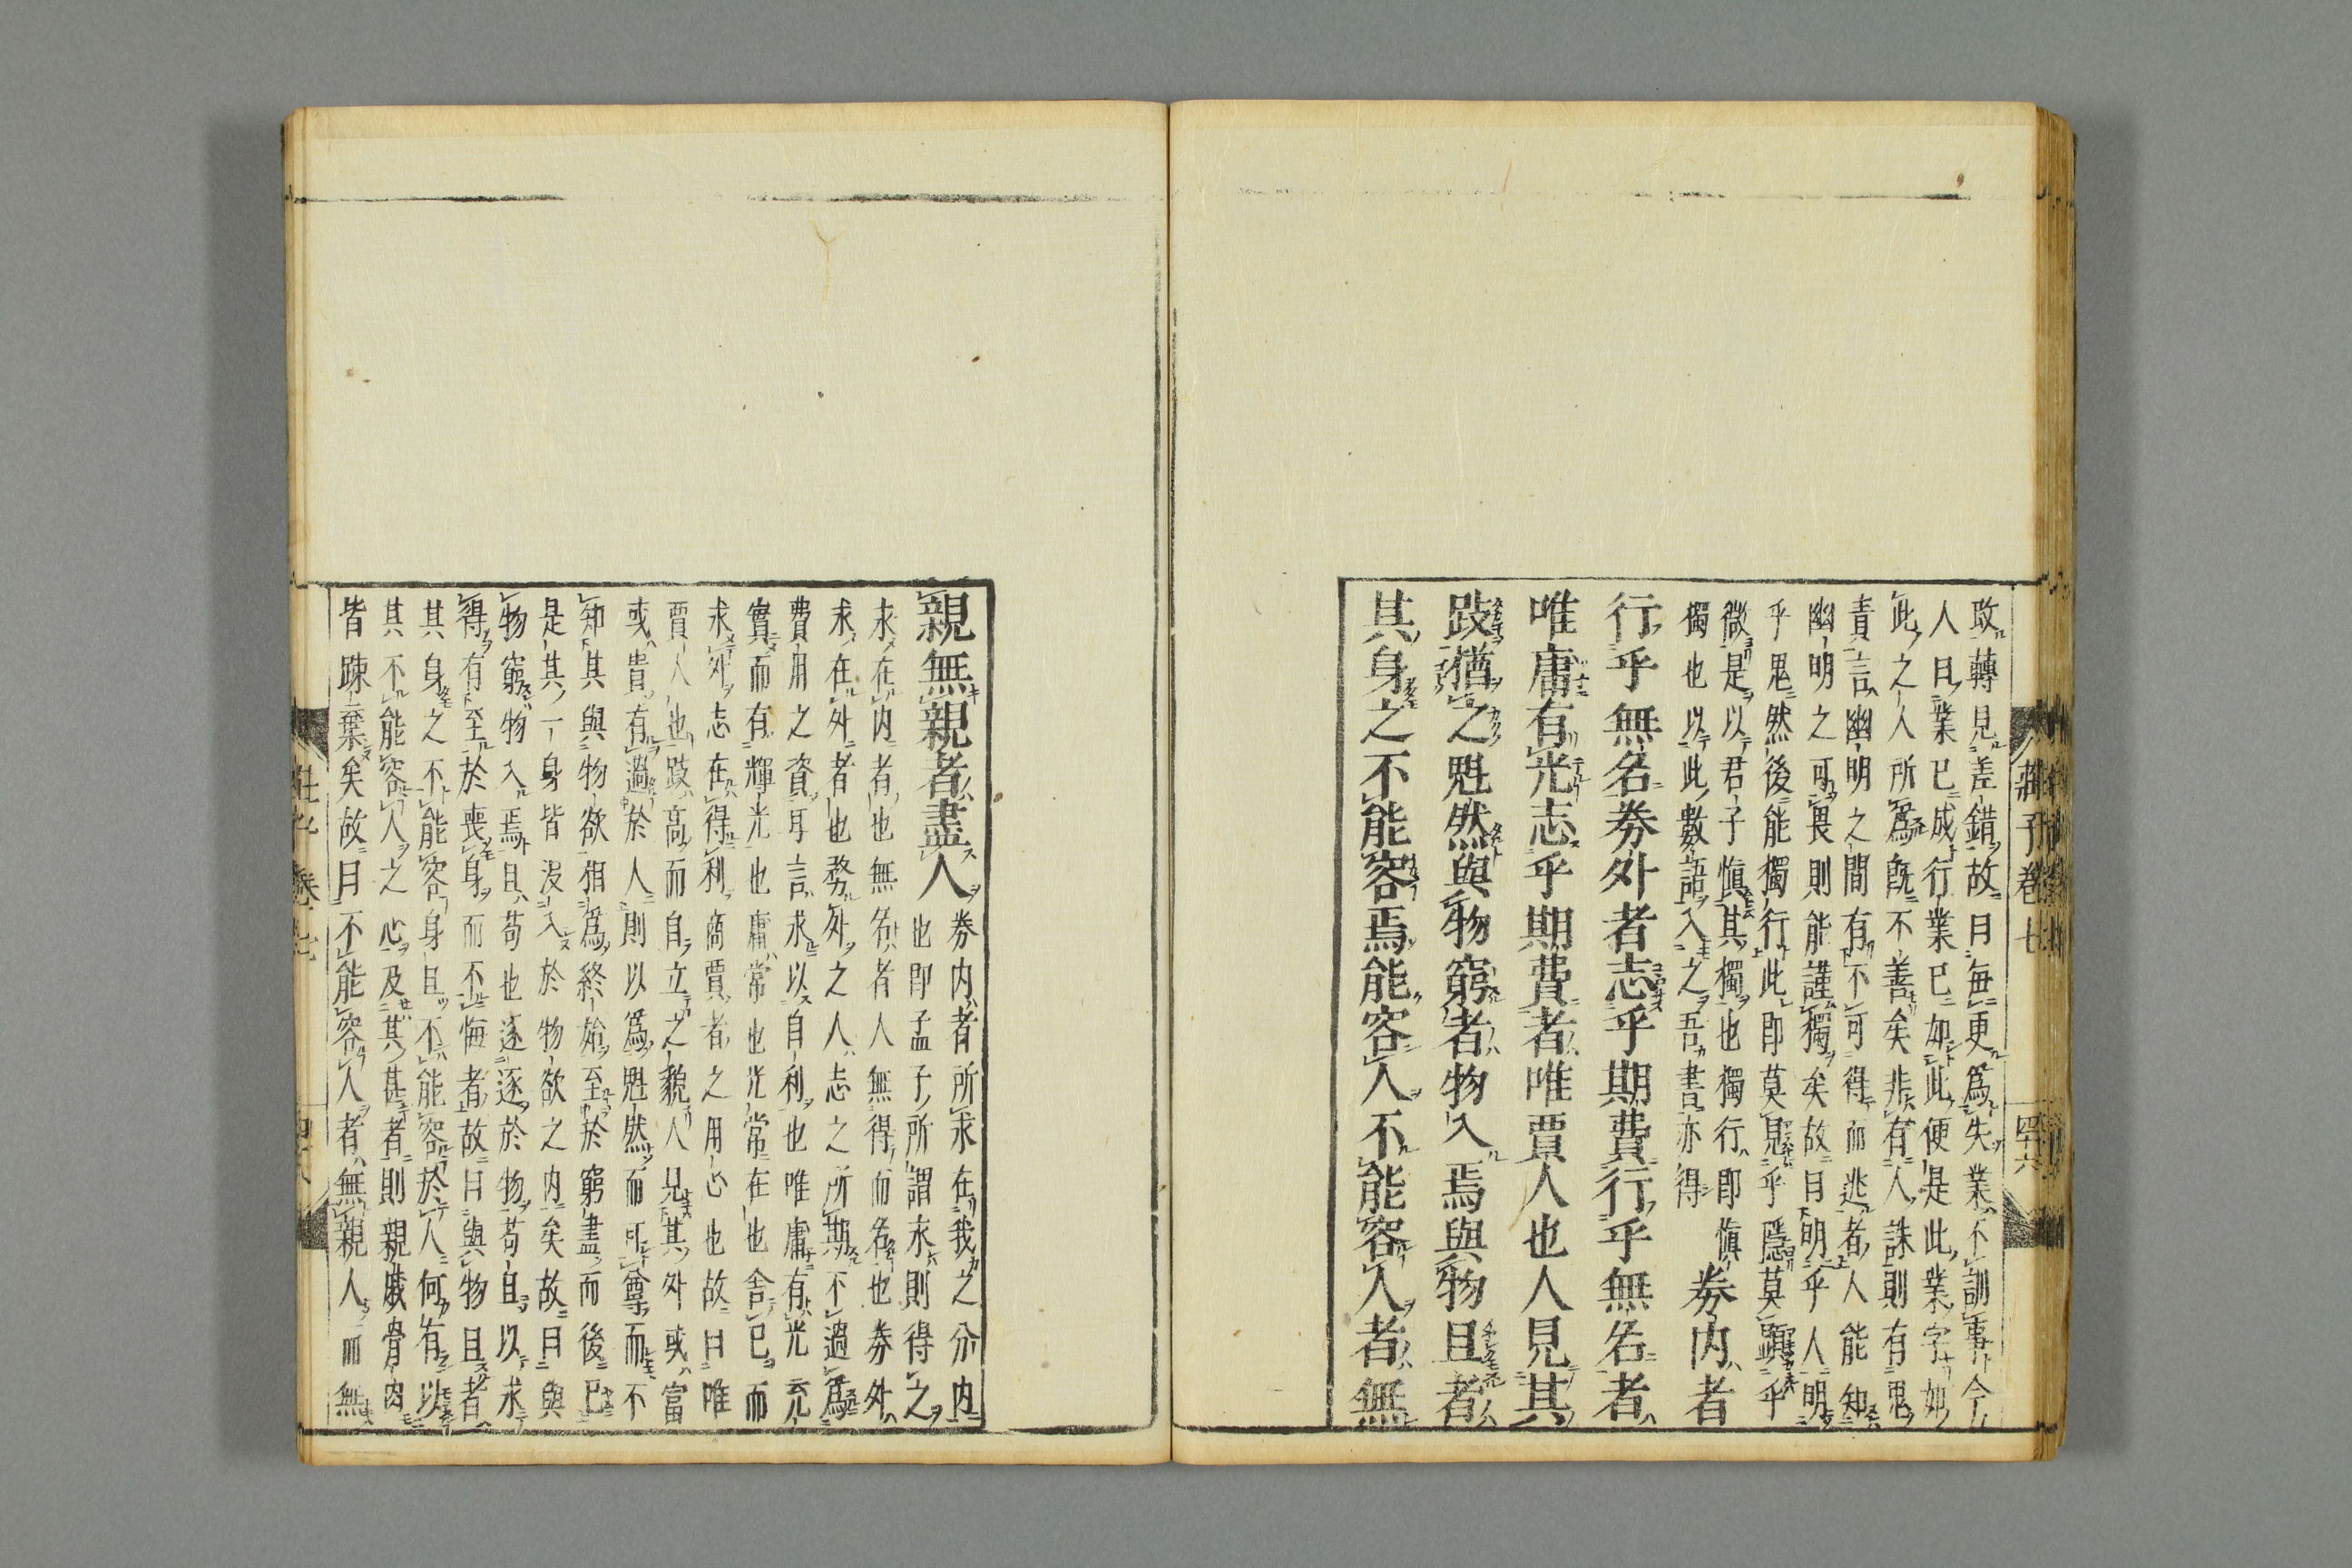 改轉見差錯故曰毎更爲失業不訓事今
人曰業已成行業已如此便是此業字如
此之人所爲旣不善矣非有人誅則有鬼
責言幽明之間有不可得而逃者人能知
幽明之可畏則能謹獨矣故曰明乎人明
乎鬼然後能獨行此即莫見乎隱莫顯乎
微是以君子愼其獨也獨行即愼
獨也以此數語入之吾書亦得
券内者
行乎無名券外者志乎期費行乎無名者
唯庸有光志乎期費者唯賈人也人見其
跂猶之魁然與物窮者物入焉與物且者
其身之不能容焉能容人不能容人者無
莊子卷七
四十六
親無親者盡人
券内者所求在我之分内
也即孟子所謂求則得之
求在内者也無名者人無得而名也券外
求在外者也務外之人志之所期不過爲
費用之資耳言求以自利也唯庸有光充
實而有輝光也庸常也光常在也舍已而
求外志在得利商賈者之用心也故曰唯
賈人也跂高而自立之貌人見其外或富
或貴有過於人則以爲魁然而可尊而不
知其與物欲相爲終始至於窮盡而後已
是其一身皆没入於物欲之内矣故曰與
物窮物入焉且苟也逐逐於物苟且以求
得有至於喪身而不悔者故曰與物且者
其身之不能容身且不能容於人何有以
其不能容人之心及其甚者則親戚骨肉
皆踈棄矣故曰不能容人者無親人而無